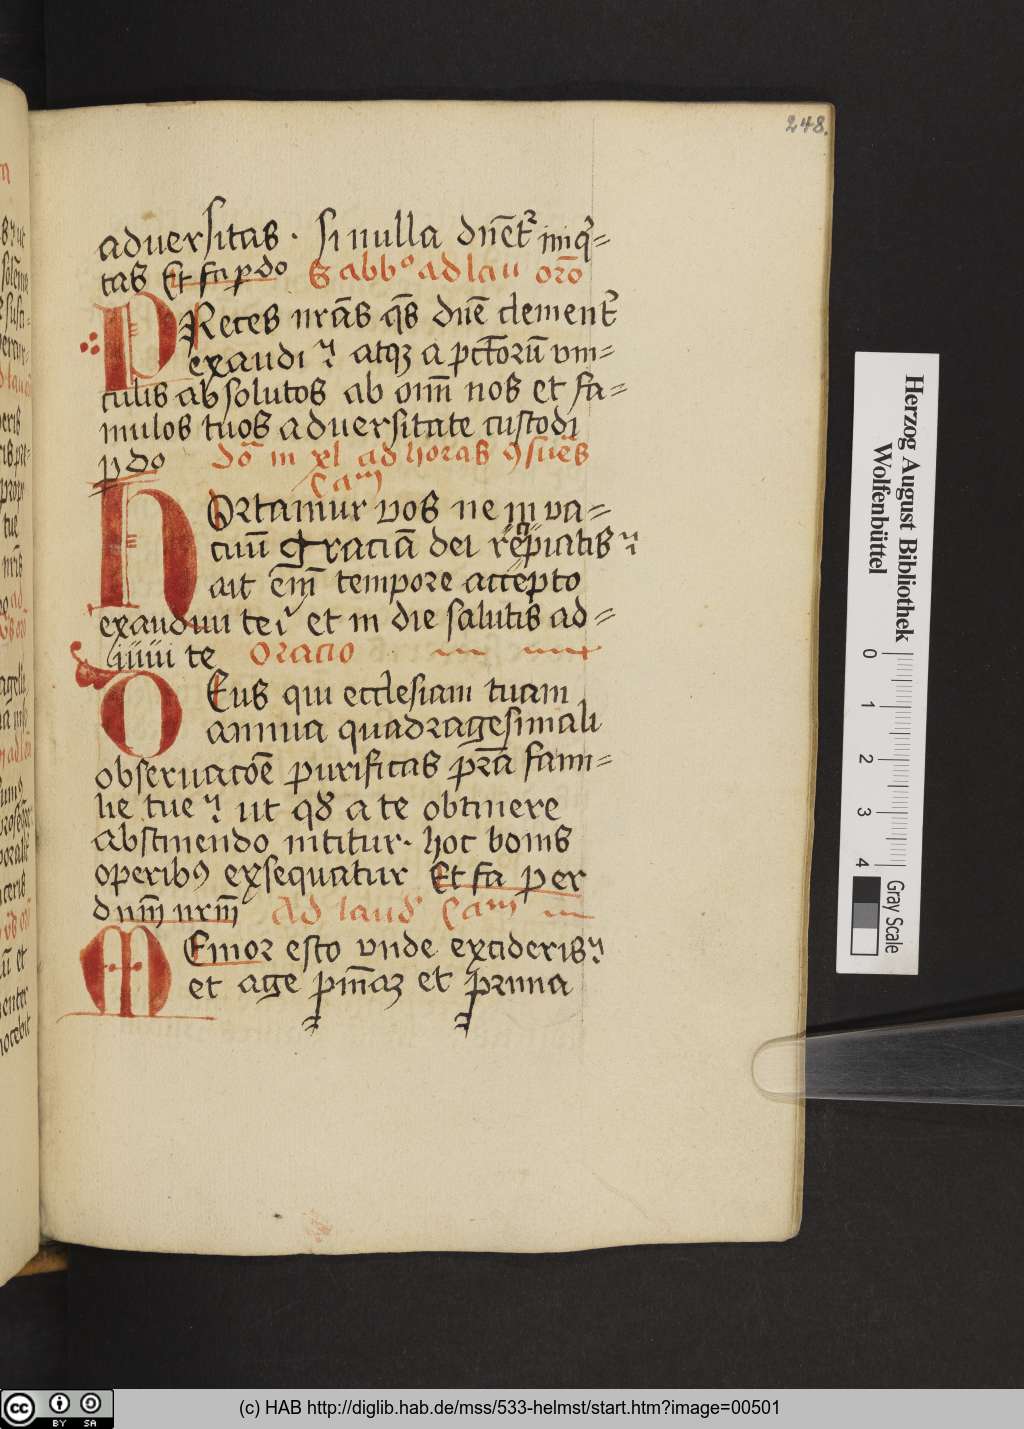 248.
aduersitas · Si nulla dn̄et᷑ iniq᷑=
tas Et fa p do Sabb⁰ ad lau oro᷑
PReces nr̄as qs̄ dn̄e clement᷑
exaudi ⁊ atqꝫ a pctorū vin=
culis absolutos ab om̄i nos et fa=
mulos tuos aduersitate custodi
p do do᷑ in xl ad horas ꝯsuēs
Cam
HOrtamur vos ne in va=
cuū graciā dei recipiatis
ait em̄ tempore accepto
exaudiui te et in die salutis ad=
iuui te Oracio
DEus qui ecclesiam tuam
annua quadragesimali
obseruacōe purificas pr̄a fami=
lie tue ut qd a te obtinere
abstinendo nititur · hoc bonis
operibꝰ exsequatur Et fa per
dnm̄ nrm̄ Ad laud Cam
MEmor esto vnde excideris
et age pn̄iaȝ et prima
Herzog August Bibliothek
Wolfenbüttel
0 1 2 3 4
Gray Scale
(c) HAB http://diglib.hab.de/mss/533-helmst/start.htm?image=00501
cc BY SA